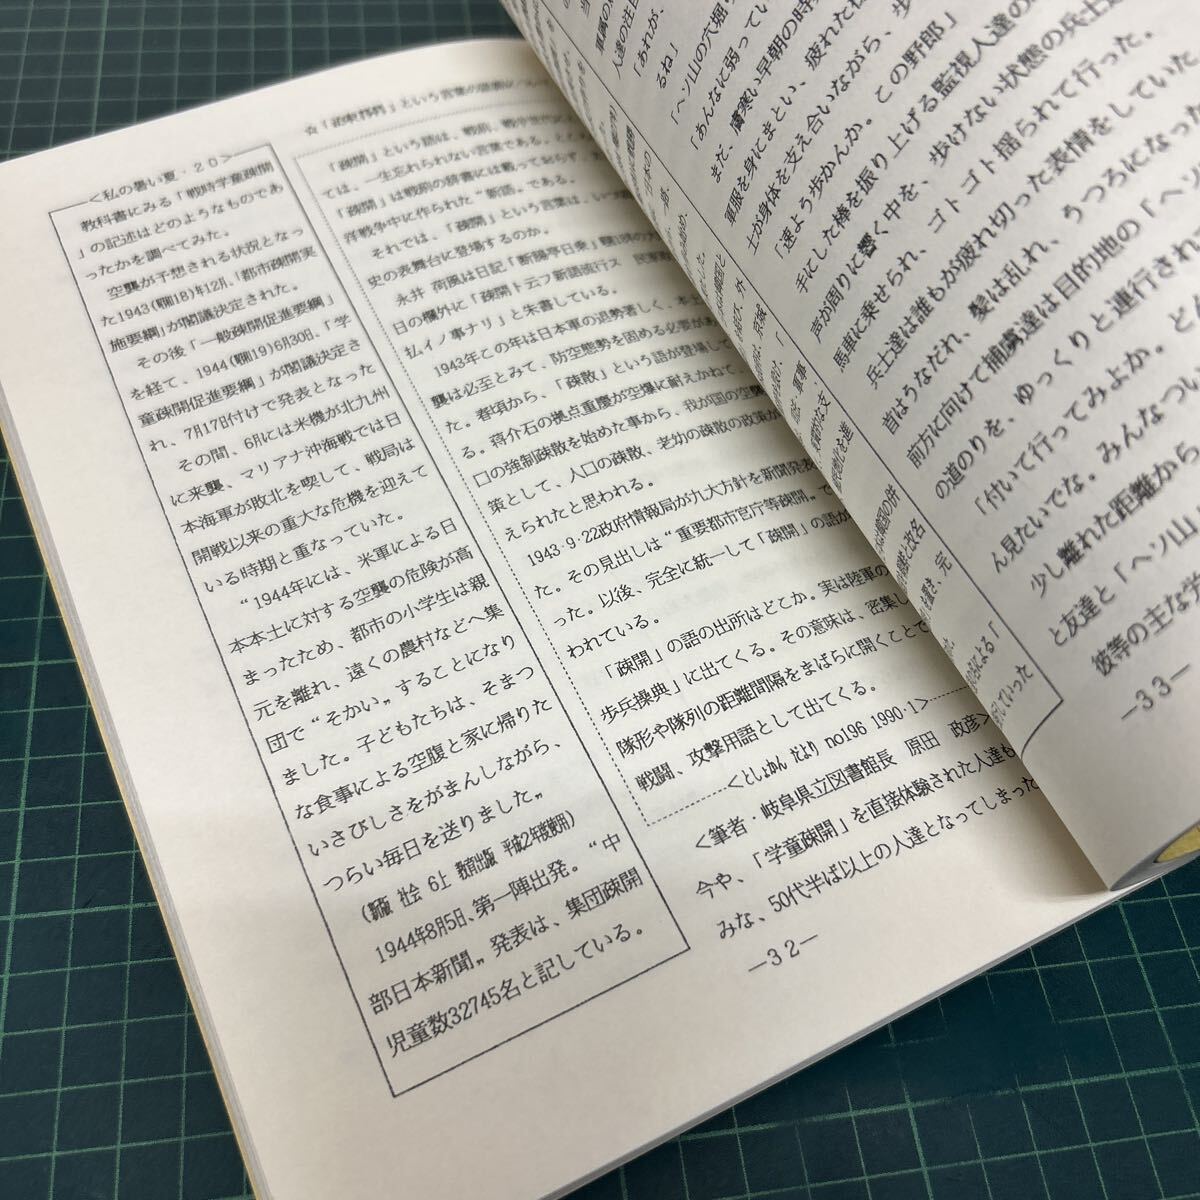 <私の暑い夏・20>
教科書にみる「戦時学童疎開
」の記述はどのようなものであ
ったかを調べてみた。
空襲が予想される状況となっ
た1943(昭和18)年12月、「都市疎開実
施要綱」が閣議決定された。
その後「一般疎開促進要綱」
を経て、1944(昭和19)6月30日、「学
童疎開促進要綱」が閣議決定さ
れ、7月17日付けで発表となった
その間、6月には米機が北九州
に来襲、マリアナ沖海戦では日
本海軍が敗北を喫して、戦局は
開戦以来の重大な危機を迎えて
いる時期と重なっていた。
“1944年には、米軍による日
本本土に対する空襲の危険が高
まったため、都市の小学生は親
元を離れ、遠くの農村などへ集
団で“そかい„することになり
ました。子どもたちは、そまつ
な食事による空腹と家に帰りた
いさびしさをがまんしながら、
つらい毎日を送りました„
(新版 社会 6上 教育出版 平成2年度使用)
1944年8月5日、第一陣出発。“中
部日本新聞„発表は、集団疎開
児童数32745名と記している。
「疎開」という語は、戦前、戦中世代
ては、一生忘れられない言葉である。ところ
「疎開」は戦前の辞書には載っておらず、
洋戦争中に作られた“新語„である。
それでは、「疎開」という言葉は、いつ
史の表舞台に登場するのか。
永井 荷風は日記「断腸亭日乗」
日の欄外に「疎開ト云フ新語流行ス 民家
払イノ事ナリ」と朱書している。
1943年この年は日本軍の退勢著しく、本土
襲は必至とみて、防空態勢を固める必要が
た。春頃から、「疎散」という語が登場して
る。蒋介石の拠点重慶が空爆に耐えかねて、
口の強制疎散を始めた事から、我が国の空襲
策として、人口の疎散、老幼の疎散の政策が
えられたと思われる。
1943・9・22政府情報局が九大方針を新聞発表
た。その見出しは“重要都市官庁等疎開„で
った。以後、完全に統一して「疎開」の語が
われている。
「疎開」の語の出所はどこか。実は陸軍の
歩兵操典」に出てくる。その意味は、密集し
隊形や隊列の距離間隔をまばらに開くことで
戦闘、攻撃用語として出てくる。
<としょかん だより no196 1990・1>
<筆者・岐阜県立図書館長 原田 政彦>
今や、「学童疎開」を直接体験された人達も
みな、50代半ば以上の人達となってしまった
—32—
「あれが、
るね」
「ヘソ山の六堀
「あんなに弱ってい
まだ、膚寒い早朝の時
軍服を身にまとい、疲れた
士が身体を支え合いながら、歩
「速よう歩かんか。この野郎」
手にした棒を振り上げる監視人達の
声が周りに響く中を、歩けない状態の兵士
馬車に乗せられ、ゴトゴト揺られて行った。
兵士達は誰もが疲れ切った表情をしていた
首はうなだれ、髪は乱れ、うつろになった
前方に向けて捕虜達は目的地の「ヘソ
の道のりを、ゆっくりと連行され
「付いて行ってみよか。ど
ん見たいでな。みんなつい
少し離れた距離から
と友達と「ヘソ山
彼等の主な学
—33—